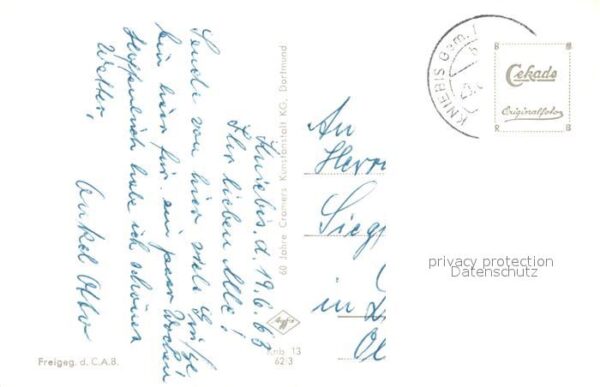 Kniebis, d. 19.6.63
Ihr lieben Alle!
Sende von hier viele Grüße,
bin hier für ein paar Wochen
Hoffentlich habe ich schönes
Wetter,
Onkel Otto
60 Jahre Cramers Kunstanstalt KG, Dortmund
Knb 13
62.3
Agfa
Freigeg. d. C.A.B.
KNIEBIS
Cekade
Originalfoto
An
Herrn
Siegp
in
privacy protection
Datenschutz